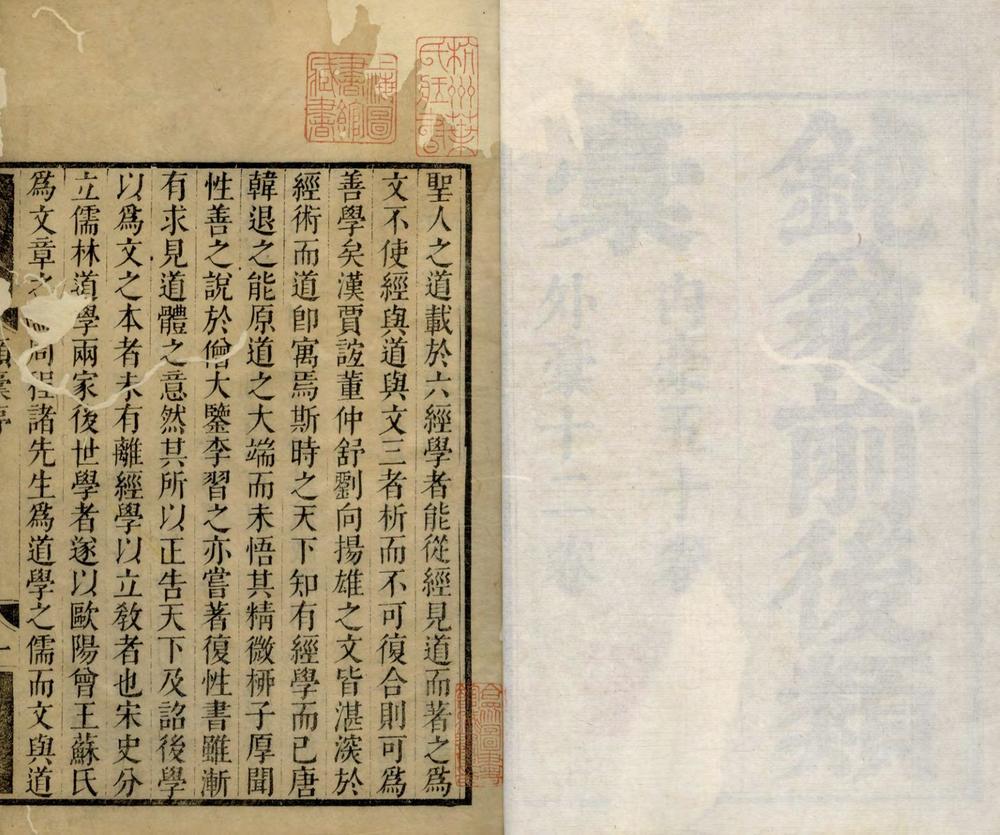 鈍翁前後類
稾
內稾五十卷
外稾十二卷
杭州葉氏藏書
上海圖書館藏書
聖人之道載於六經學者能從經見道而著之爲
文不使經與道與文三者析而不可復合則可爲
善學矣漢賈誼董仲舒劉向揚雄之文皆湛深於
經術而道卽寓焉斯時之天下知有經學而已唐
韓退之能原道之大端而未悟其精微栁子厚聞
性善之說於僧大鑒李習之亦嘗著復性書雖漸
有求見道體之意然其所以正告天下及詔後學
以爲文之本者未有離經學以立敎者也宋史分
立儒林道學兩家後世學者遂以歐陽曾王蘇氏
爲文章之周程諸先生爲道學之儒而文與道
類稾序
一